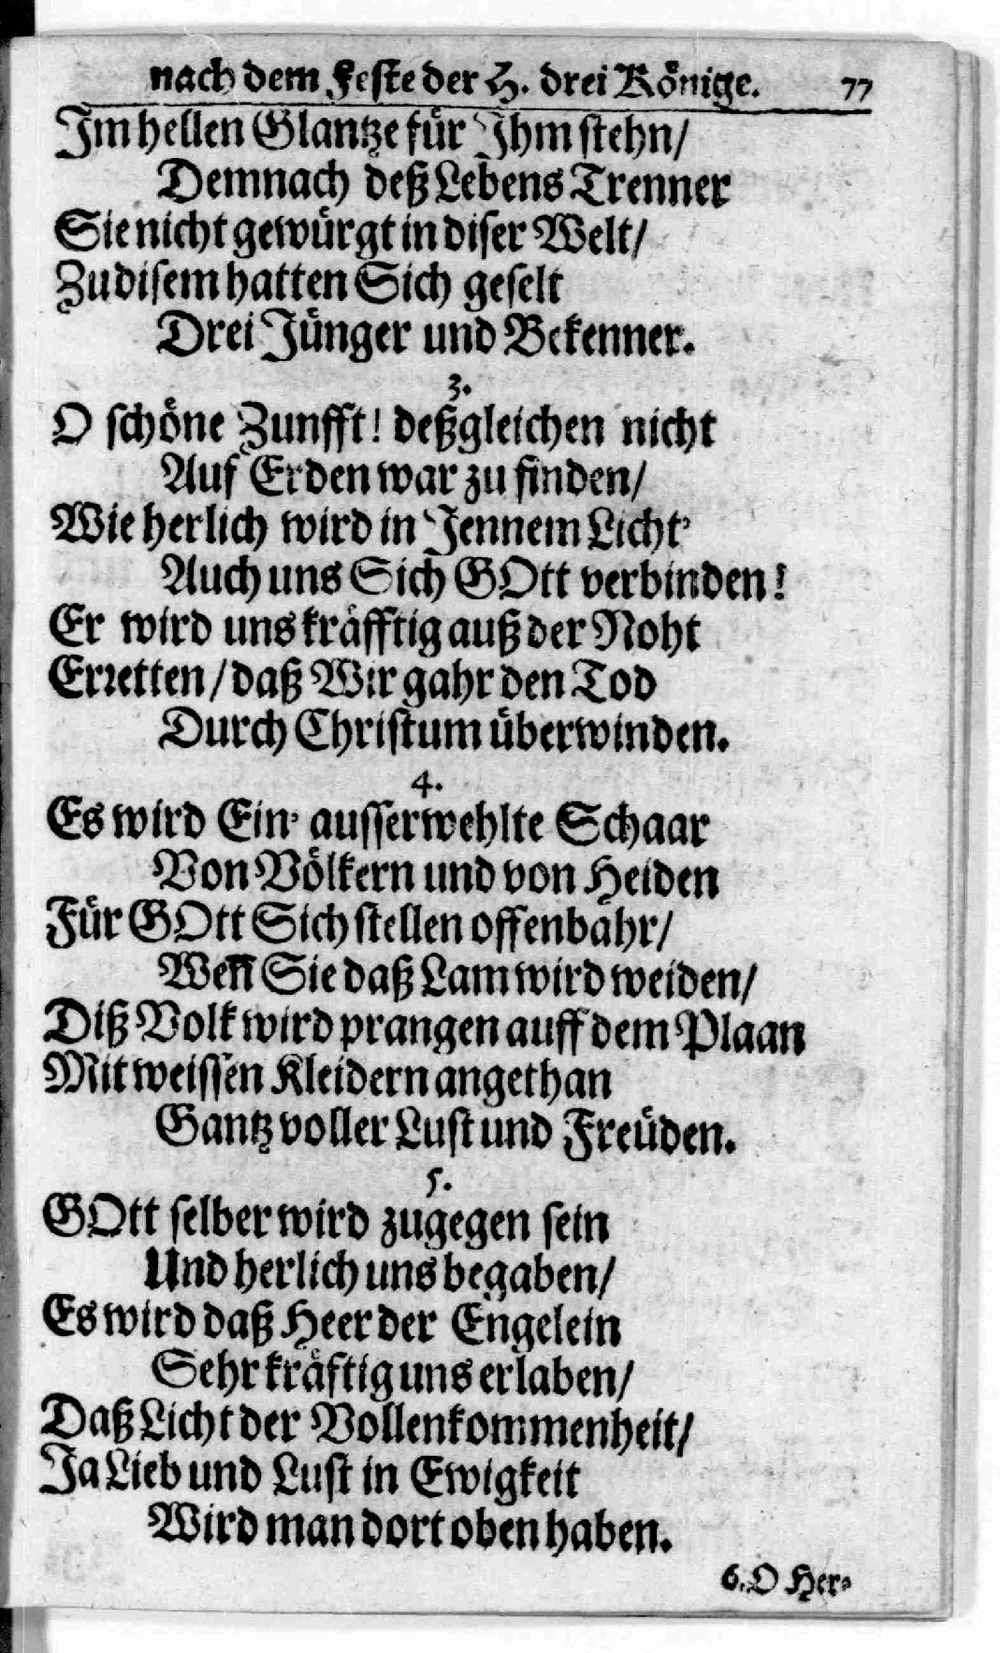 nach dem Feste der H. drei Könige. 77
Im hellen Glantze für Ihm stehn/
Demnach deß Lebens Trenner
Sie nicht gewürgt in diser Welt/
Zu disem hatten Sich geselt
Drei Jünger und Bekenner.
3.
O schöne Zunfft! deßgleichen nicht
Auf Erden war zu finden/
Wie herlich wird in Jennem Licht'
Auch uns Sich GOtt verbinden!
Er wird uns kräfftig auß der Noht
Erretten/ daß Wir gahr den Tod
Durch Christum überwinden.
4.
Es wird Ein' ausserwehlte Schaar
Von Völkern und von Heiden
Für GOtt Sich stellen offenbahr/
Weñ Sie daß Lam wird weiden/
Diß Volk wird prangen auff dem Plaan
Mit weissen Kleidern angethan
Gantz voller Lust und Freüden.
5.
GOtt selber wird zugegen sein
Und herlich uns begaben/
Es wird daß Heer der Engelein
Sehr kräftig uns erlaben/
Daß Licht der Vollenkommenheit/
Ja Lieb und Lust in Ewigkeit
Wird man dort oben haben.
6. O Her-